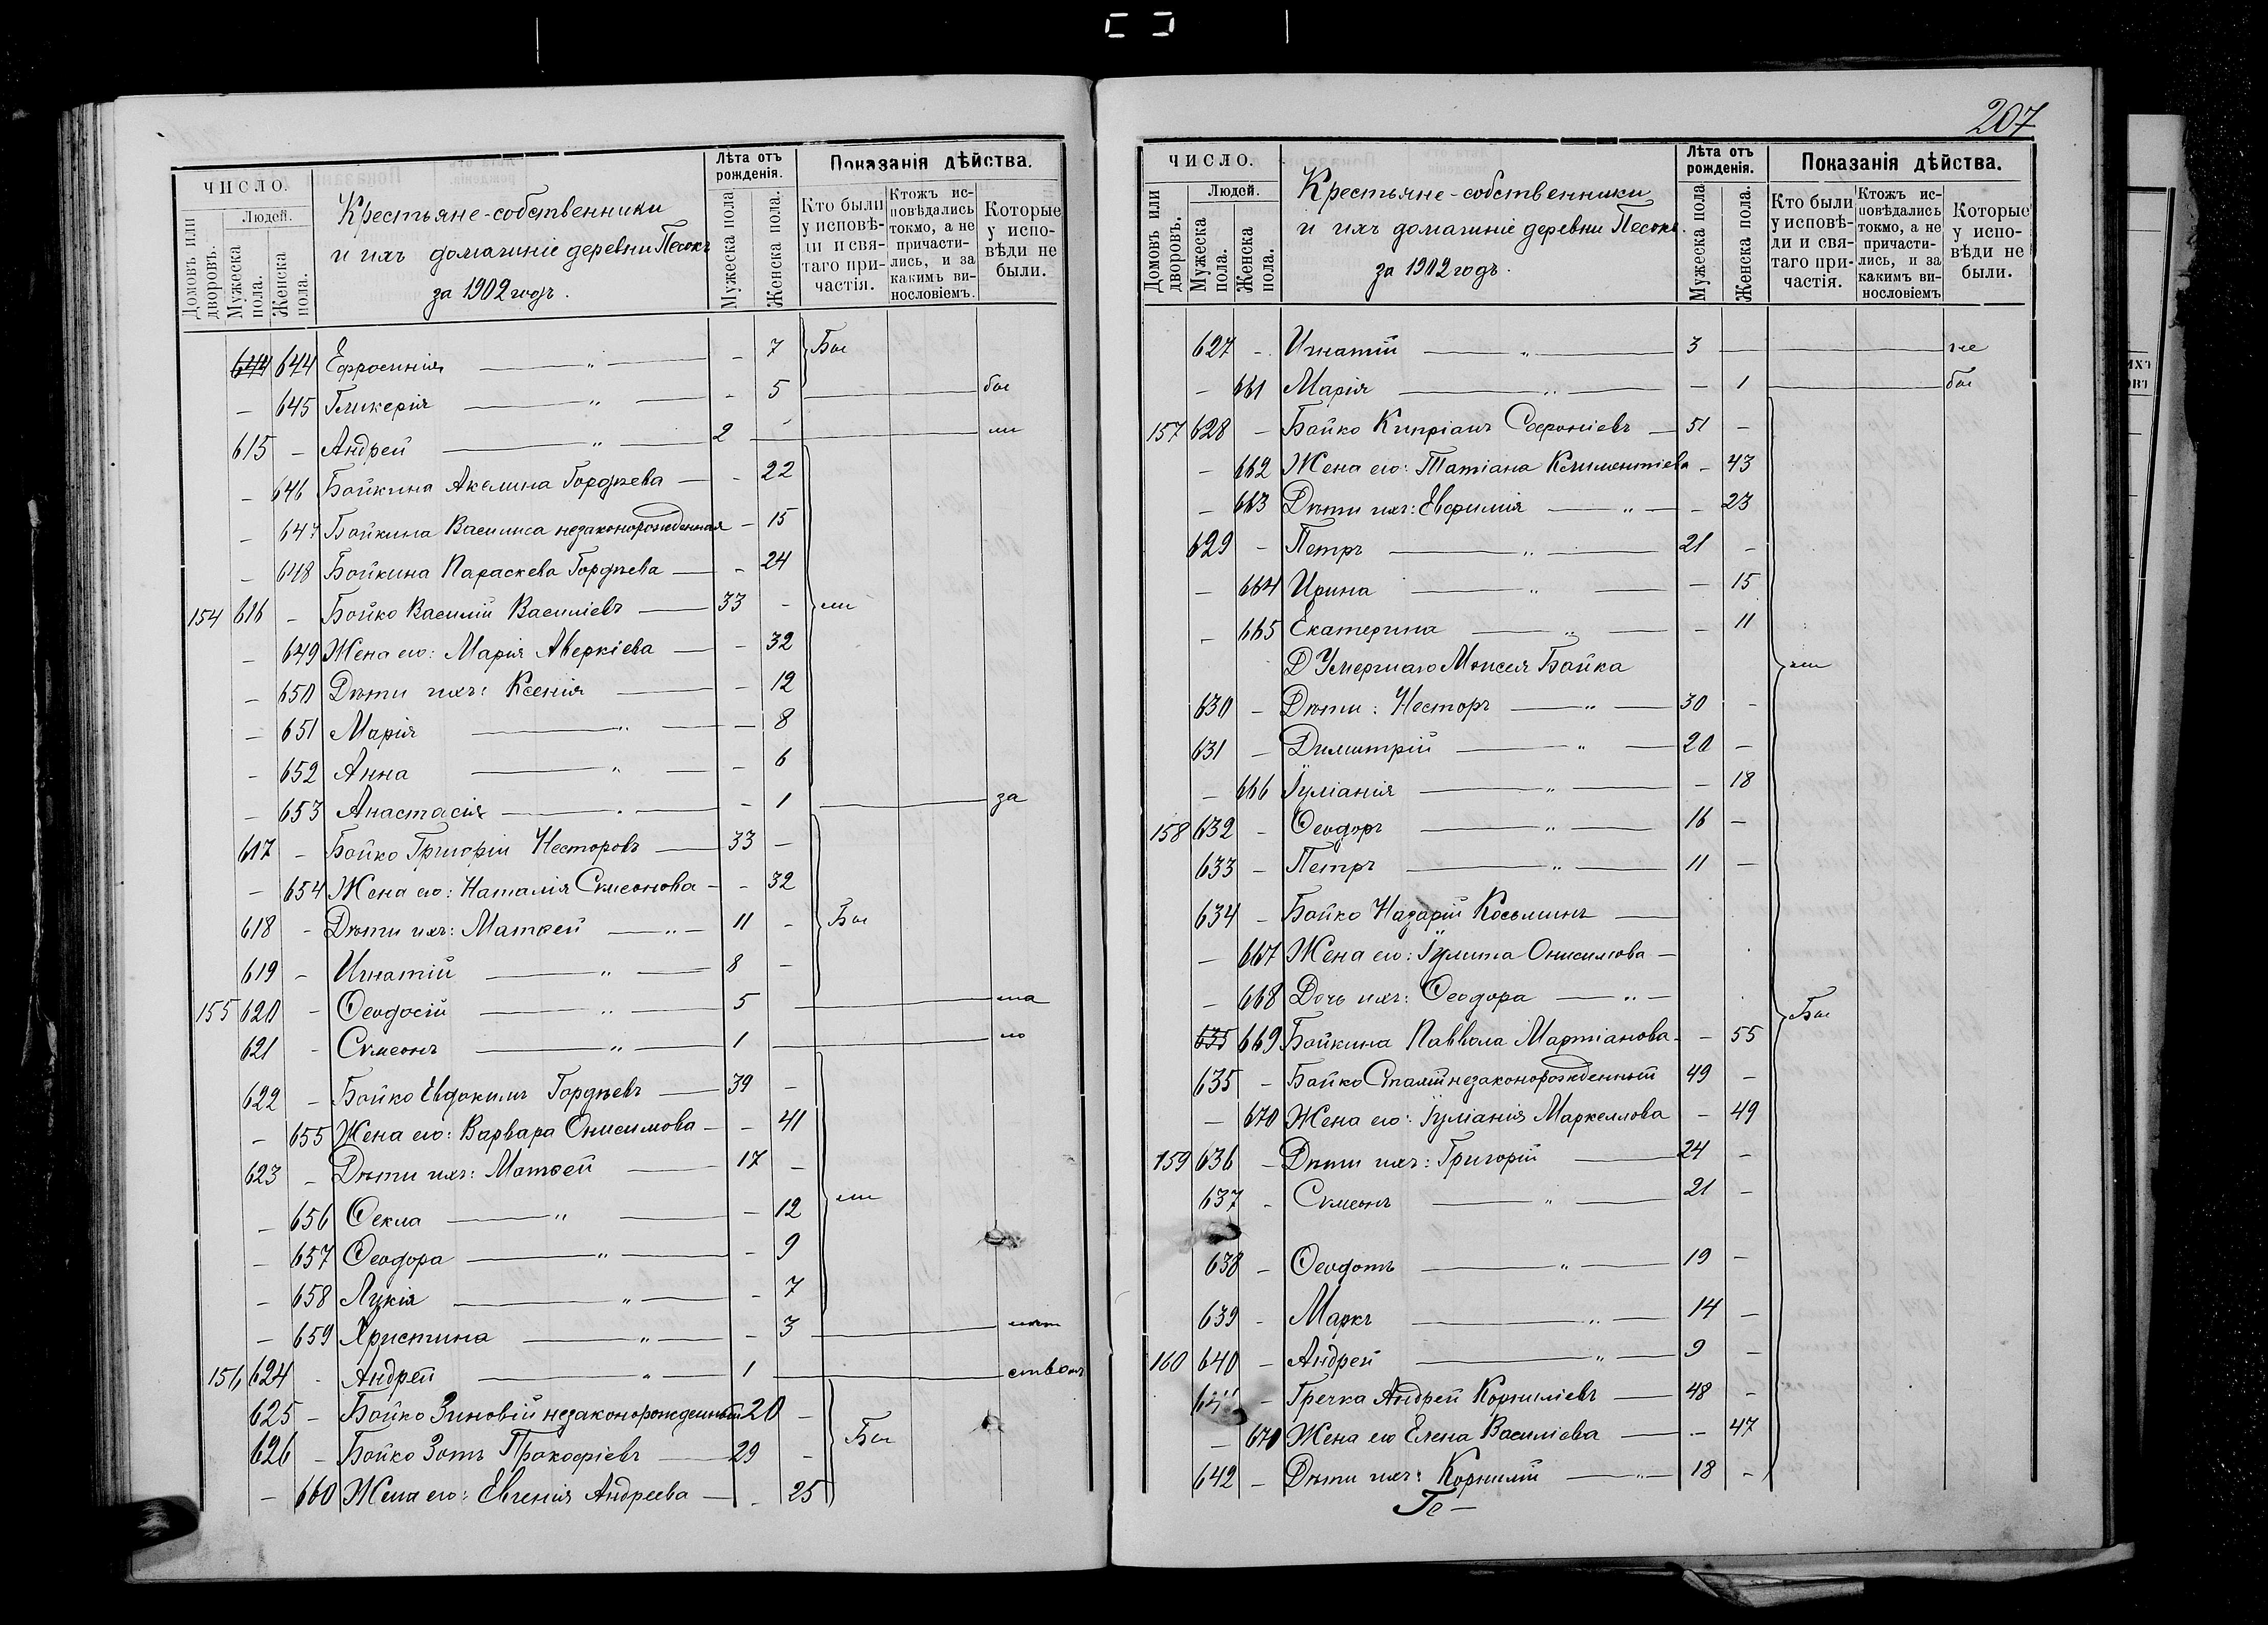 207
ЧИСЛО.
Домовъ или дворовъ.
Людей.
Мужеска пола.
Женска пола.
Крестьяне-собственники
и ихъ домашніе деревни Песокъ
за 1902 годъ.
Лѣта отъ рожденія.
Мужеска пола
Женска пола.
Показанія дѣйства.
Кто были у исповѣди и святаго причастія.
Ктожъ исповѣдались токмо, а не причастились, и за какимъ винословіемъ.
Которые у исповѣди не были.
644 644 Ефросинія — „ — - 7 Бы
- 645 Гликерія — „ — - 5 — бы
615 - Андрей — „ — 2 - — ли
- 646 Бойкина Акилина Гордѣева — - 22
- 647 Бойкина Василиса незаконорожденная - 15
- 648 Бойкина Параскева Гордѣева — - 24
154 616 - Бойко Василій Василіевъ — 33 - ли
- 649 Жена его: Марія Аверкіева — - 32
- 650 Дѣти ихъ: Ксенія — - 12
- 651 Марія — „ — - 8
- 652 Анна — „ — - 6
- 653 Анастасія — „ — - 1 — за
617 - Бойко Григорій Несторовъ — 33 -
- 654 Жена его: Наталія Сѵмеонова - - 32
618 - Дѣти ихъ: Матѳей — „ — 11 - Бы
619 - Игнатій — „ — 8 -
155 620 - Ѳеодосій — „ — 5 — ма
621 - Сѵмеонъ — „ — 1 — ло
622 - Бойко Евдокимъ Гордѣевъ — 39 -
- 655 Жена его: Варвара Онисимова - - 41
623 - Дѣти ихъ: Матѳей — 17 -
- 656 Ѳекла — „ — - 12 ли
- 657 Ѳеодора — „ — - 9
- 658 Лукія — „ — - 7
- 659 Христина — „ — - 3 — лѣт
156 624 - Андрей — „ — 1 — ствомъ
625 - Бойко Зиновій незаконорожденный 20 -
626 - Бойко Зотъ Прокофіевъ — 29 - Бы
- 660 Жена его: Евгенія Андреева — - 25
ЧИСЛО.
Домовъ или дворовъ.
Людей.
Мужеска пола.
Женска пола.
Крестьяне-собственники
и ихъ домашніе деревни Песокъ.
за 1902 годъ.
Лѣта отъ рожденія.
Мужеска пола
Женска пола.
Показанія дѣйства.
Кто были у исповѣди и святаго причастія.
Ктожъ исповѣдались токмо, а не причастились, и за какимъ винословіемъ
Которые у исповѣди не были.
627 - Игнатій — „ — 3 — не
- 661 Марія — „ — - 1 — бы
157 628 - Бойко Кипріанъ Софроніевъ — 51 -
- 662 Жена его: Татіана Климентіева - 43
- 663 Дѣти ихъ: Евфимія — „ — - 23
629 - Петръ — „ — 21 -
- 664 Ирина — „ — - 15
- 665 Екатерина — „ — - 11
Д Умершаго Моисея Бойка ли
630 - Дѣти: Несторъ — „ — 30 -
631 - Димитрій — „ — 20 -
- 666 Іуліанія — „ — - 18
158 632 - Ѳеодоръ — „ — 16 -
633 - Петръ — „ — 11 -
634 - Бойко Назарій Косьминъ —
- 667 Жена его: Іулита Онисимова -
- 668 Дочь ихъ: Ѳеодора — „ — Бы
635 669 Бойкина Паввола Мартіанова - - 55
635 - Бойко незаконорожденный 49 -
- 670 Жена его: Іуліанія Маркеллова - 49
159 636 - Дѣти ихъ: Григорій — 24 -
637 - Сѵмеонъ — „ — 21 -
638 - Ѳеодотъ — „ — 19 -
639 - Маркъ — „ — 14 -
160 640 - Андрей — „ — 9 -
641 - Гречка Андрей Корниліевъ — 48 -
- 670 Жена его Елена Василіева — - 47
642 - Дѣти ихъ: Корнилій — „ — 18 -
Ге-